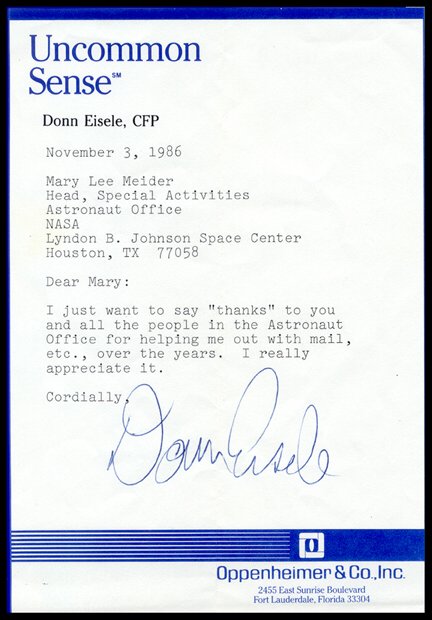 Uncommon
Sense℠
Donn Eisele, CFP
November 3, 1986
Mary Lee Meider
Head, Special Activities
Astronaut Office
NASA
Lyndon B. Johnson Space Center
Houston, TX  77058
Dear Mary:
I just want to say "thanks" to you
and all the people in the Astronaut
Office for helping me out with mail,
etc., over the years.  I really
appreciate it.
Cordially,
Donn Eisele
Oppenheimer & Co., Inc.
2455 East Sunrise Boulevard
Fort Lauderdale, Florida 33304